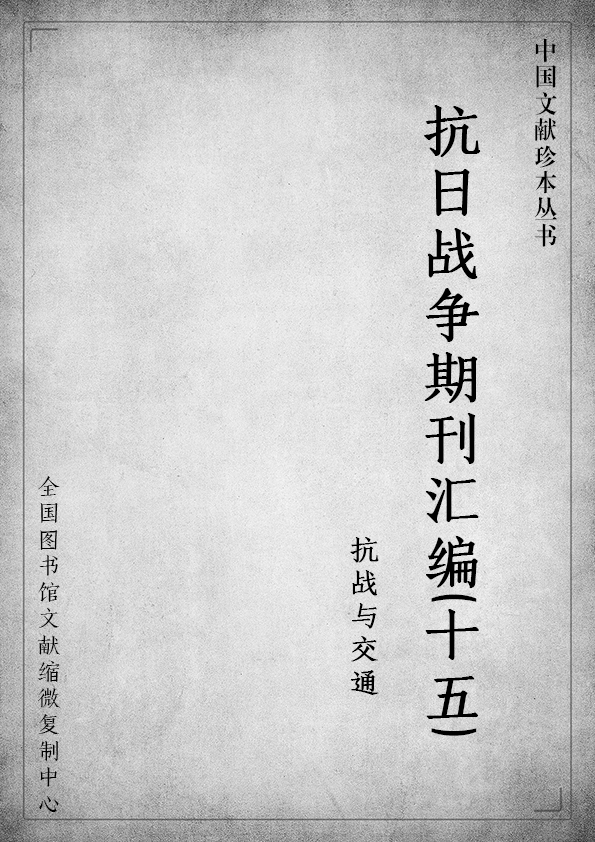 中国文献珍本丛书
抗日战争期刊汇编(十五)
抗战与交通
全国图书馆文献缩微复制中心